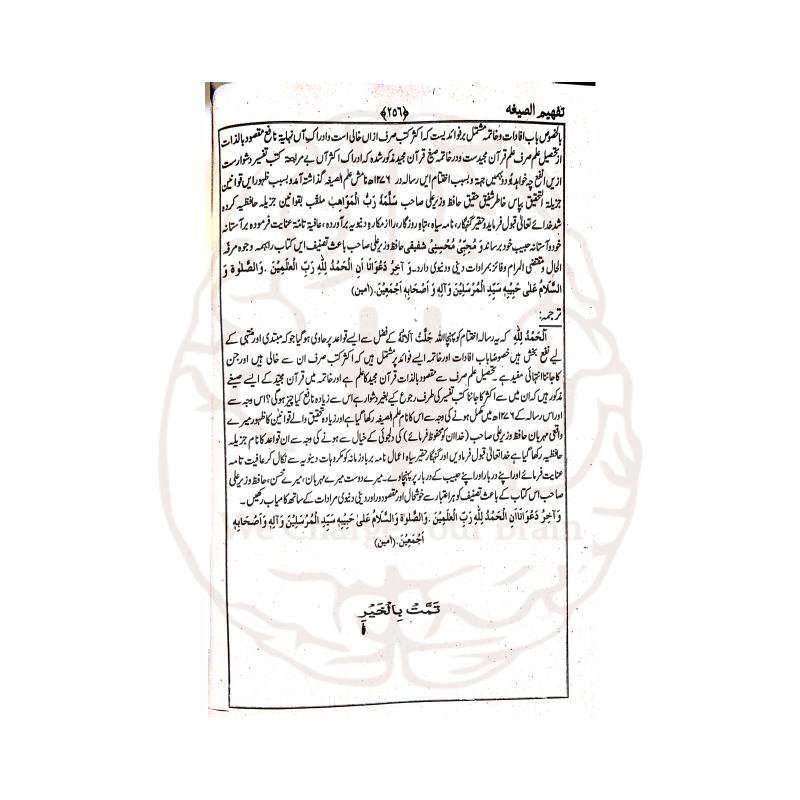 تفہیم الصیغہ
﴿۲۵۶﴾
بالخصوص باب افادات و خاتمہ مشتمل بر فوائدیست کہ اکثر کتب صرف ازاں خالی است و ادراک آں نہایۃ نافع مقصود بالذات
از تحصیل علم صرف علم قرآن مجیدست و در خاتمہ صیغ قرآن مجید مذکور شدہ کہ ادراک اکثر آں بے مراجعۃ کتب تفسیر دشوارست
ازیں انفع چہ خواہد بود و بہمیں جہۃ و بسبب اختتام ایں رسالہ در ۱۲۷۶ھ نامش علم الصیغہ گذاشتہ آمد و بسبب ظہور ایں قوانین
جزیلۃ التحقیق بپاس خاطر شفیق حقیق حافظ وزیر علی صاحب سَلَّمَهٗ رَبُّ الْمَوَاهِبِ ملقب بقوانین جزیلہ حافظیہ کردہ
شد خدائے تعالیٰ قبول فرماید و حقیر گنہگار، نامہ سیاہ، تباہ روزگار، را از مکارہ دنیویہ برآوردہ، عافیۃ تامۃ عنایت فرمودہ بر آستانہ
خود و آستانہ حبیب خود برساند و مُحِبِّيْ مُحْسِنِيْ شَفِيْقِيْ حافظ وزیر علی صاحب باعث تصنیف ایں کتاب را بہمہ وجوہ مرفہ
الحال و مقتضی المرام و فائز بمرادات دینی و دنیوی دارد۔ وَ آخِرُ دَعْوَانَا اَنِ الْحَمْدُ لِلّٰهِ رَبِّ الْعٰلَمِيْنَ ۔ وَالصَّلٰوةُ وَ
السَّلَامُ عَلٰى حَبِيْبِهٖ سَيِّدِ الْمُرْسَلِيْنَ وَآلِهٖ وَ اَصْحَابِهٖ اَجْمَعِيْنَ. (اٰمین)
ترجمہ:
اَلْحَمْدُ لِلّٰهِ کہ یہ رسالہ اختتام کو پہنچا اللہ جَلَّتْ آلَائُهٗ کے فضل سے ایسے قواعد پر حاوی ہو گیا جو کہ مبتدی اور منتہی کے
لیے نفع بخش ہیں خصوصا باب افادات اور خاتمہ ایسے فوائد پر مشتمل ہیں کہ اکثر کتب صرف ان سے خالی ہیں اور جن
کا جاننا انتہائی مفید ہے۔ تحصیل علم صرف سے مقصود بالذات قرآن مجید کا علم ہے اور خاتمہ میں قرآن مجید کے ایسے صیغے
مذکور ہیں کہ ان میں سے اکثر کا جاننا کتب تفسیر کی طرف رجوع کیے بغیر دشوار ہے اس سے زیادہ نافع کیا چیز ہو گی؟ اس وجہ سے
اور اس رسالہ کے ۱۲۷۶ھ میں مکمل ہونے کی وجہ سے اس کا نام علم الصیغہ رکھا گیا ہے اور زیادہ تحقیق والے قوانین کا ظہور میرے
واقعی مہربان حافظ وزیر علی صاحب (خدا ان کو محفوظ فرمائے) کی دلجوئی کے خیال سے ہونے کی وجہ سے ان قواعد کا نام جزیلہ
حافظیہ رکھا گیا ہے خدا تعالیٰ قبول فرماویں اور گنہگار حقیر سیاہ اعمال نامہ برباد زمانہ کو مکروہات دینویہ سے نکال کر عافیت تامہ
عنایت فرمائے اور اپنے دربار اور اپنے حبیب کے دربار پر پہنچاوے۔ میرے دوست میرے مہربان، میرے محسن، حافظ وزیر علی
صاحب اس کتاب کے باعث تصنیف کو ہر اعتبار سے خوشحال اور مقصود ور اور دینی دنیوی مرادات کے ساتھ کامیاب رکھیں۔
وَ آخِرُ دَعْوَانَا اَنِ الْحَمْدُ لِلّٰهِ رَبِّ الْعٰلَمِيْنَ ۔ وَالصَّلٰوةُ وَالسَّلَامُ عَلٰى حَبِيْبِهٖ سَيِّدِ الْمُرْسَلِيْنَ وَآلِهٖ وَاَصْحَابِهٖ
اَجْمَعِيْنَ. (اٰمین)
تَمَّتْ بِالْخَيْرِ
We Change Your Brain